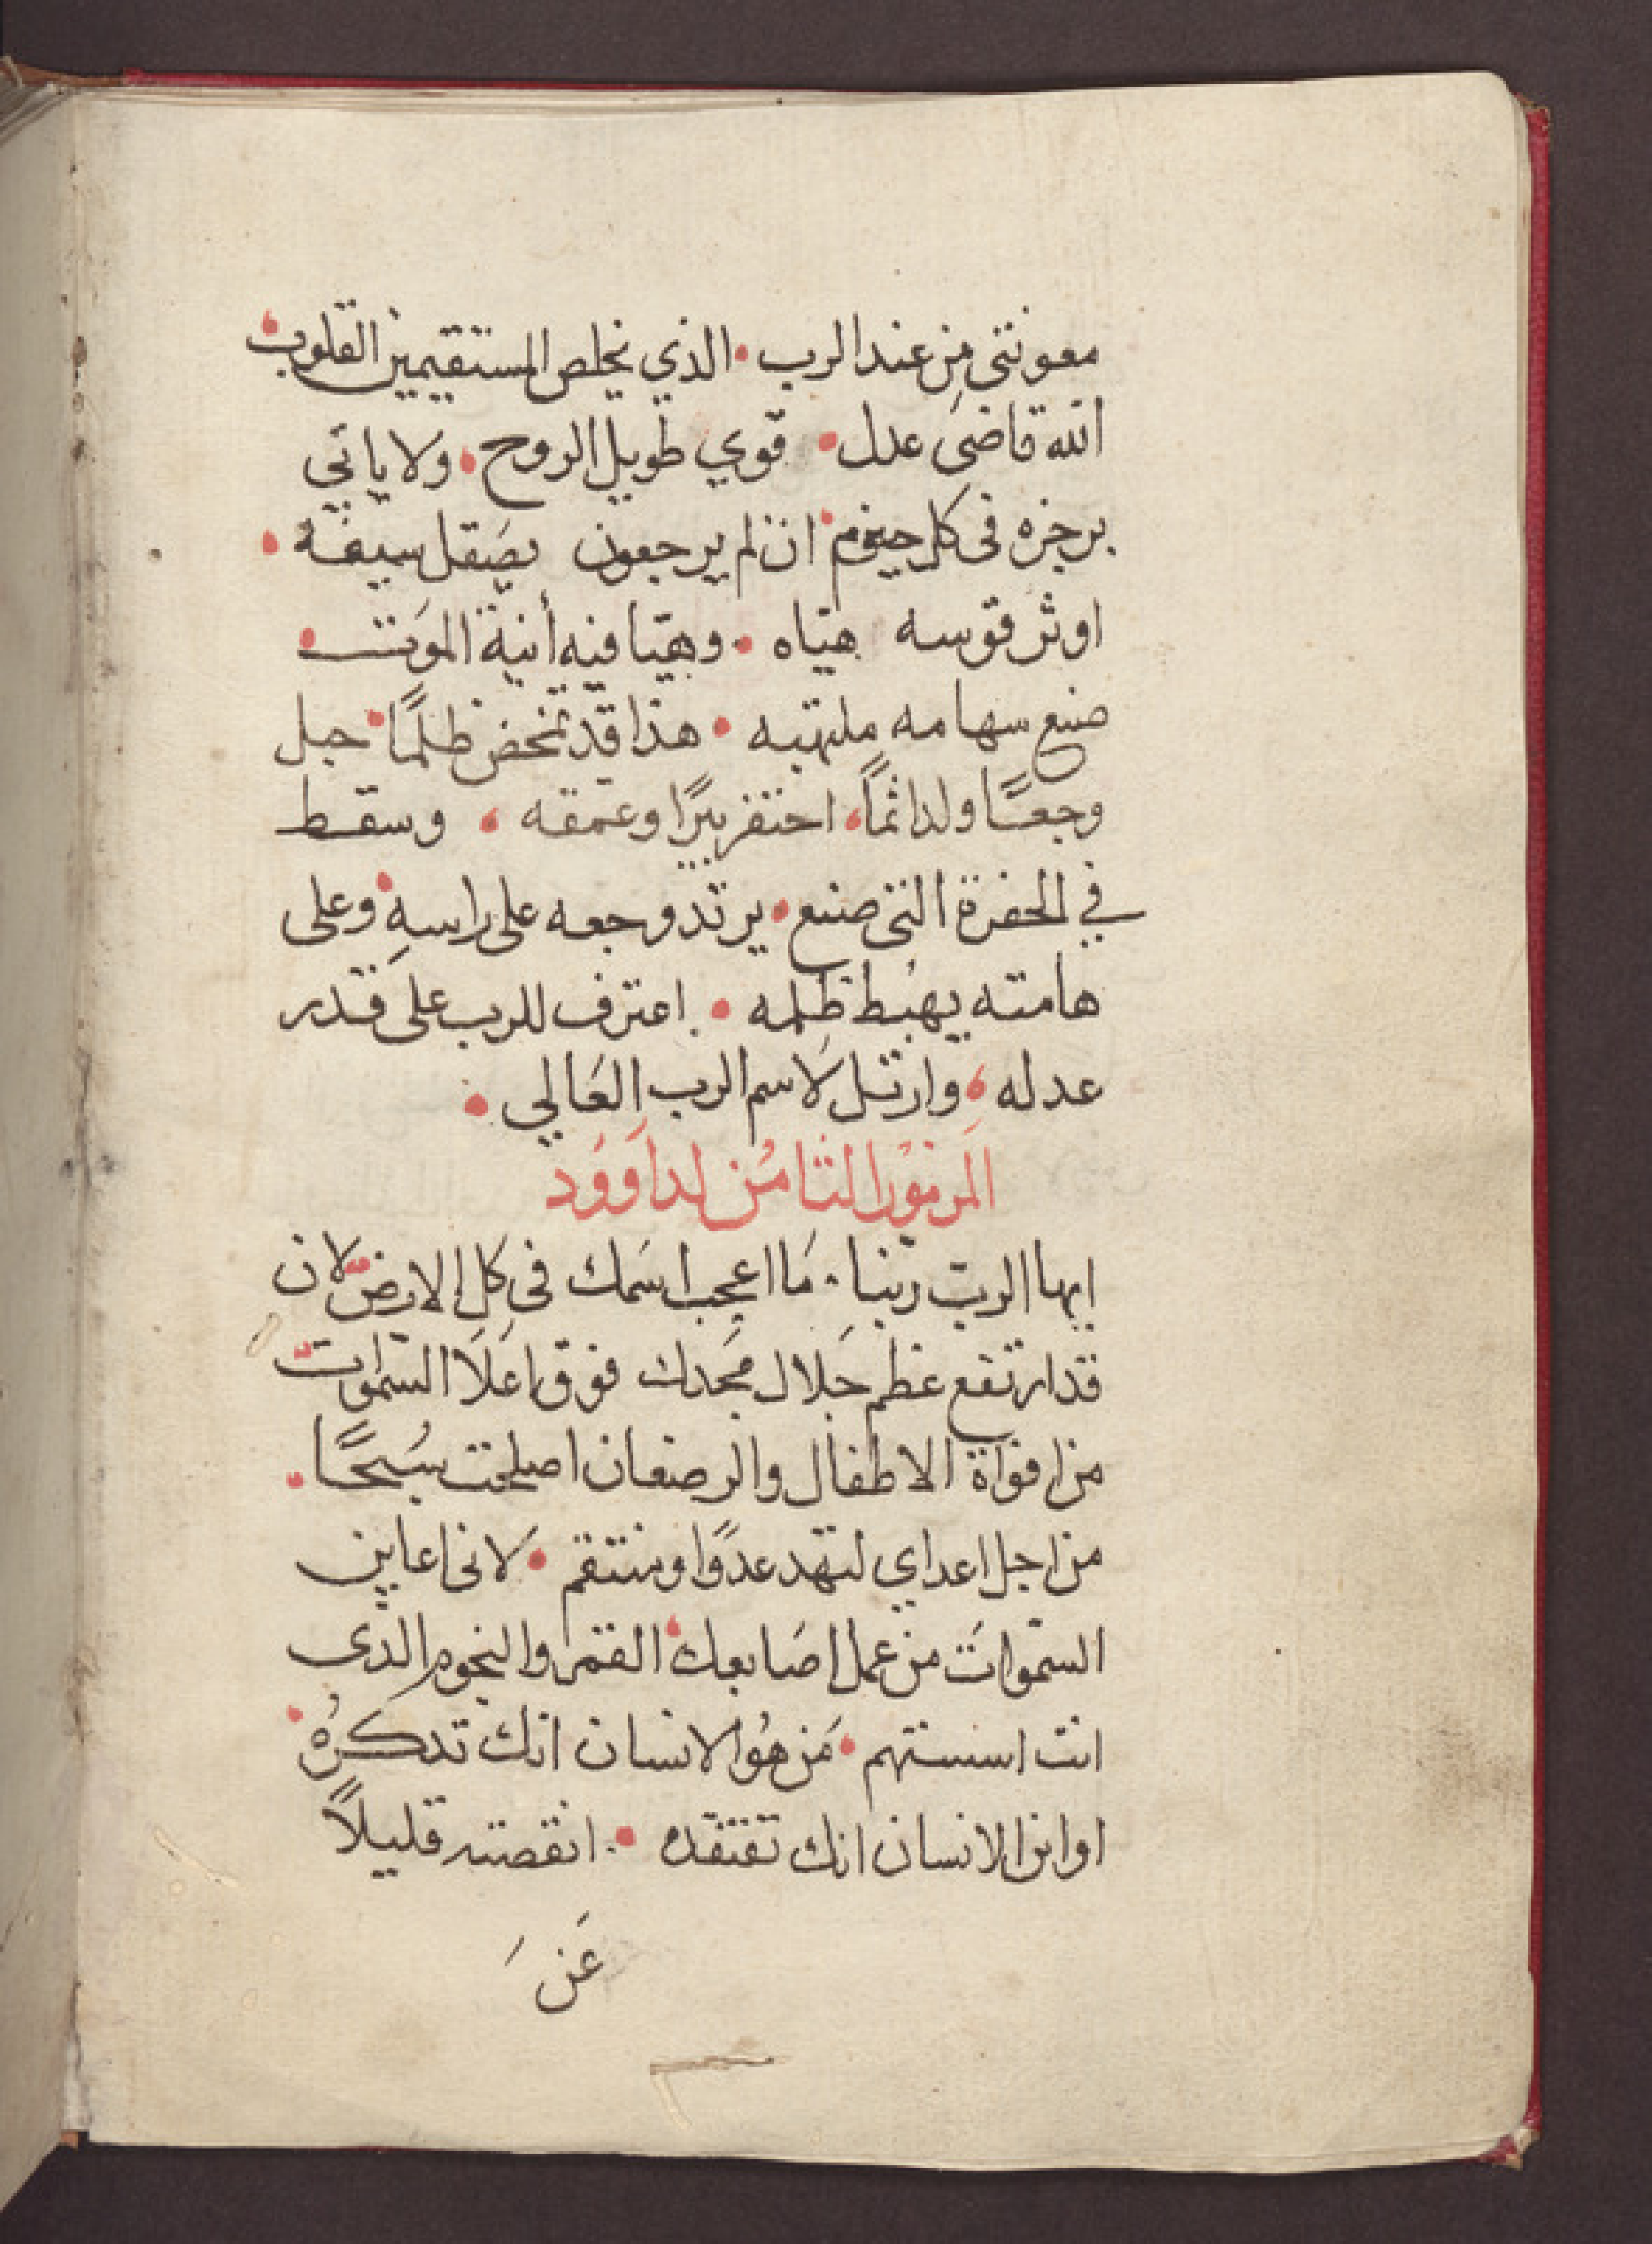 معونتي من عند الرب • الذي يخلص المستقيمين القلوب •
الله قاضي عدل • قوي طويل الروح • ولا ياتي
برجزه في كل حين • ان لم يرجعون يصقل سيفه •
اوثر قوسه هيّاه • وهيّا فيه أنية الموت •
صنع سهامه ملتهبه • هذا قد تمخض ظلمًا • حبل
وجعًا ولد اثمًا • احتفر بيرًا وعمقه • وسقط
في الحفرة التي صنع • يرتد وجعه على راسه • وعلى
هامته يهبط ظلمه • اعترف للرب على قدر
عدله • وارتل لاسم الرب العالي •
المزمور الثامن لداوود
ايها الرب ربنا • ما اعجب اسمك في كل الارض • لان
قد ارتفع عظم جلال مجدك فوق اعلا السموات •
من افواة الاطفال والرضعان اصلحت سُبحًا •
من اجل اعداي لتهد عدوًا ومنتقم • لاني اعاين
السموات من عمل اصابعك • القمر والنجوم الذي
انت اسستهم • من هو الانسان انك تدكره •
او ابن الانسان انك تفتقده • انقصته قليلاً
عن